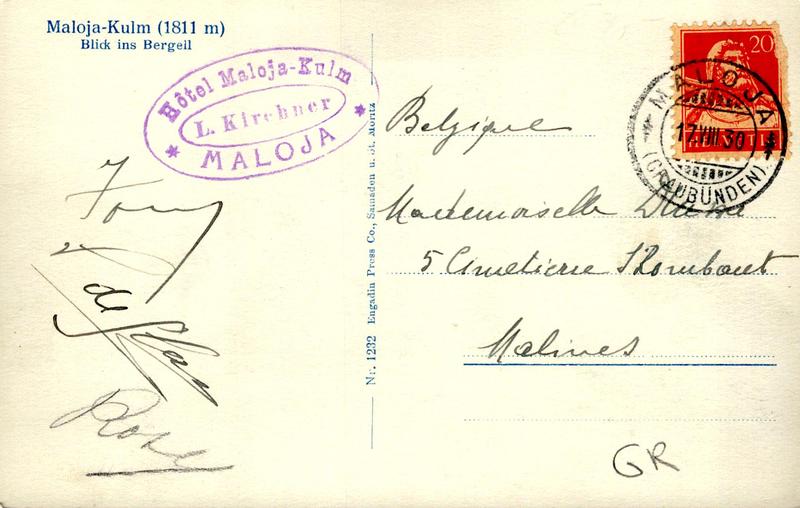 Maloja-Kulm (1811 m)
Blick ins Bergell
Hôtel Maloja-Kulm
L. Kirchner
MALOJA
Nr. 1232 Engadin Press Co., Samaden u. St. Moritz
20
MALOJA
17.VIII.30
(GRAUBÜNDEN)
Belgique
Mademoiselle
5 Cimetière St Rombaut
Malines
GR